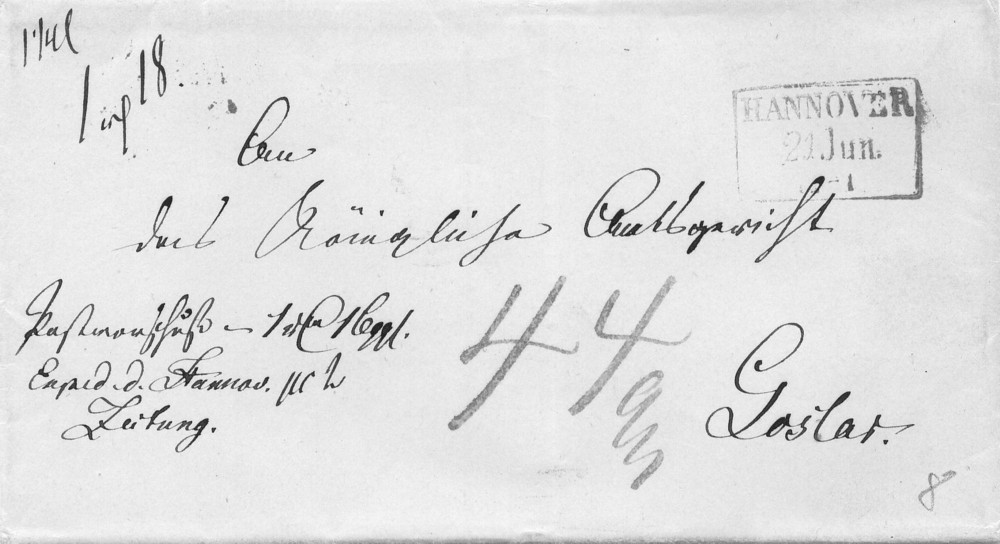 1 rℓ 18.
HANNOVER
21 Jun.
-1
An
das Königliche Amtsgericht
Postvorschuß – 1 rℓ 16 ggl.
Exped. d. Hannov.
Zeitung.
44
Goslar.
8